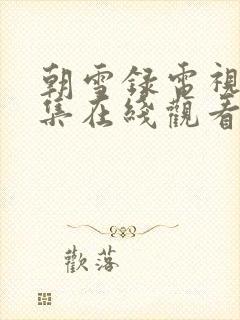 朝雪録電視
集在綫觀看
歡落